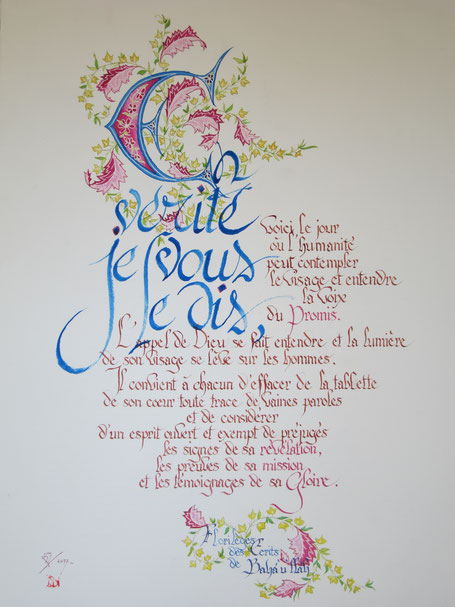 En
vérité
je vous
le dis,
voici le jour
où l'humanité
peut contempler
le visage et entendre
la voix
du Promis.
L'appel de Dieu se fait entendre et la lumière
de son visage se lève sur les hommes.
Il convient à chacun d'effacer de la tablette
de son cœur toute trace de vaines paroles
et de considérer
d'un esprit ouvert et exempt de préjugés
les signes de sa révélation,
les preuves de sa mission
et les témoignages de sa Gloire.
Florilège
des Écrits
de Bahá'u'lláh